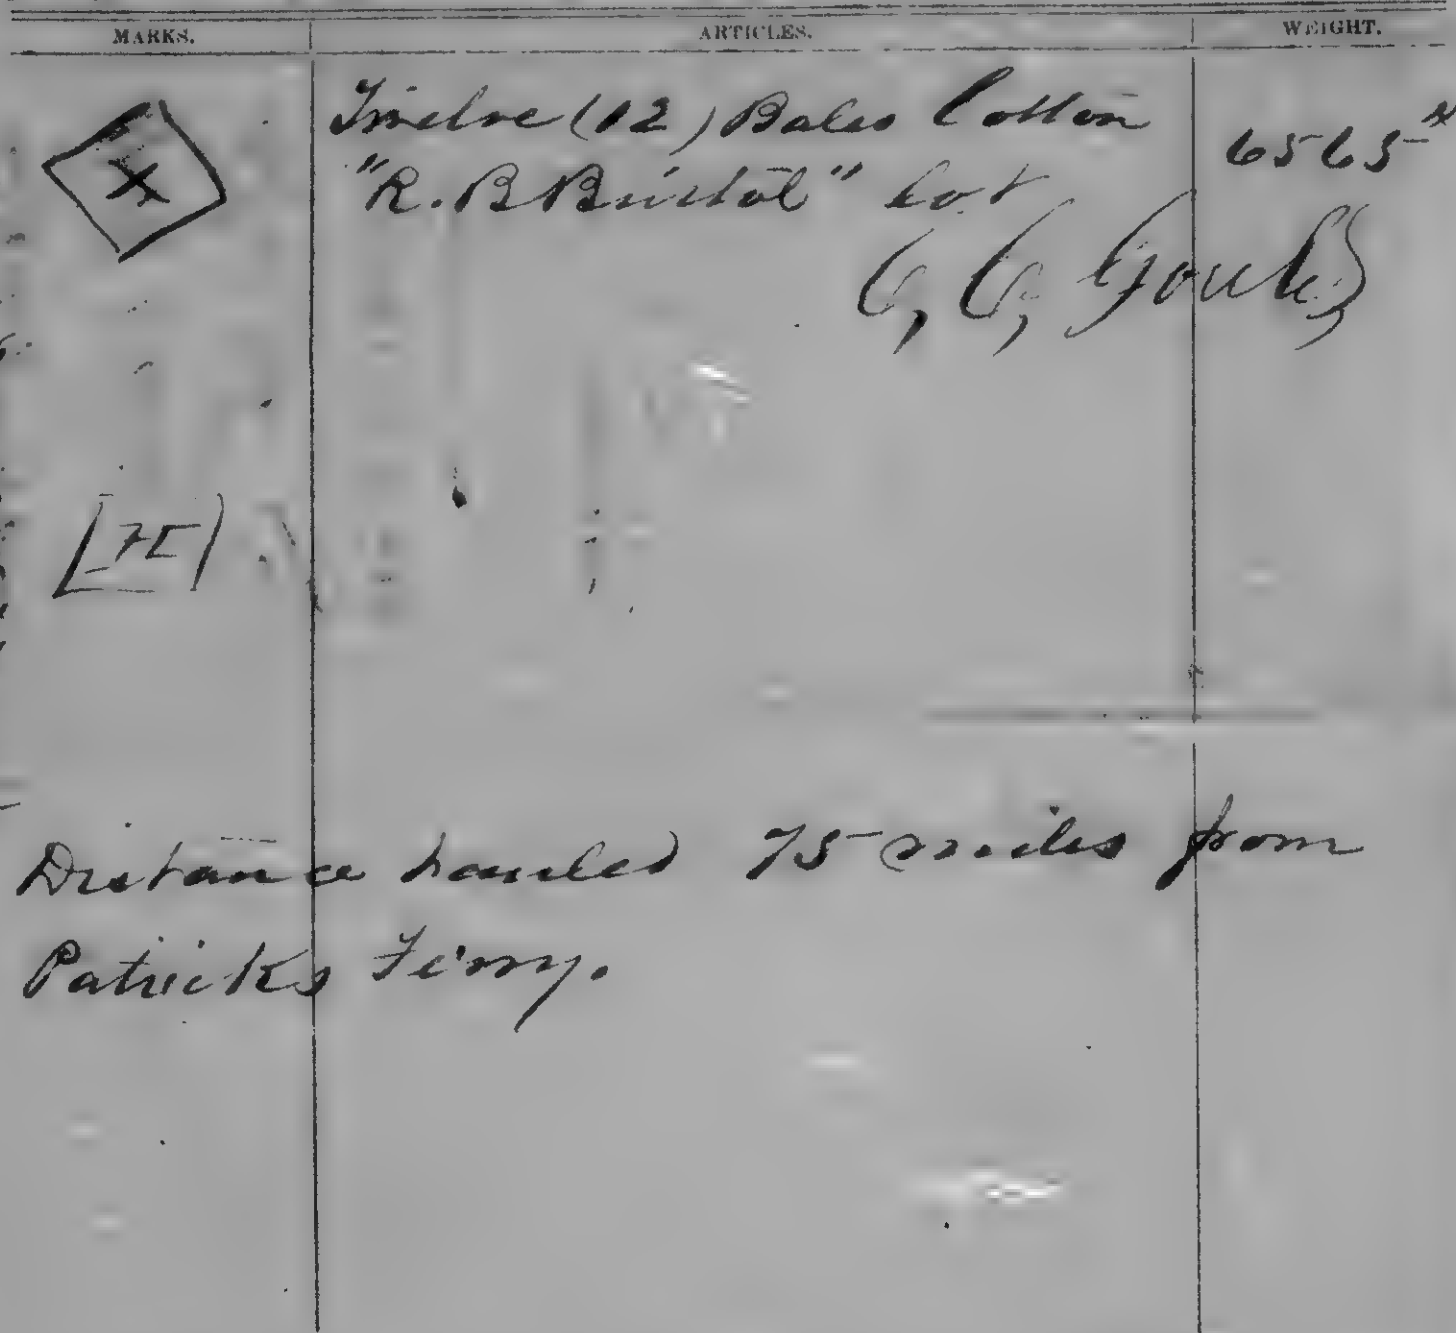 MARKS. ARTICLES. WEIGHT.
X Twelve (12) Bales Cotton 6565#
"R. B Bristol" lot
C, C,
[75]
Distance hauled 75 miles from
Patricks Ferry.